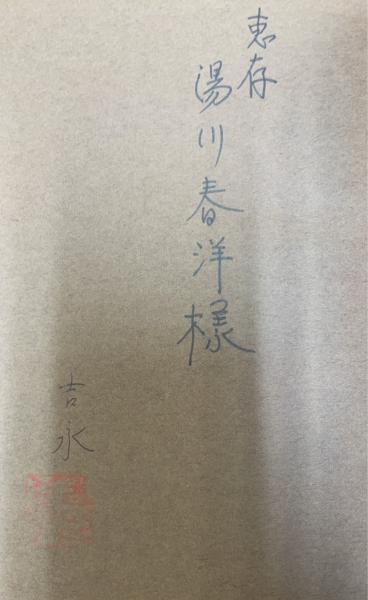 恵存
湯川春洋様
吉永